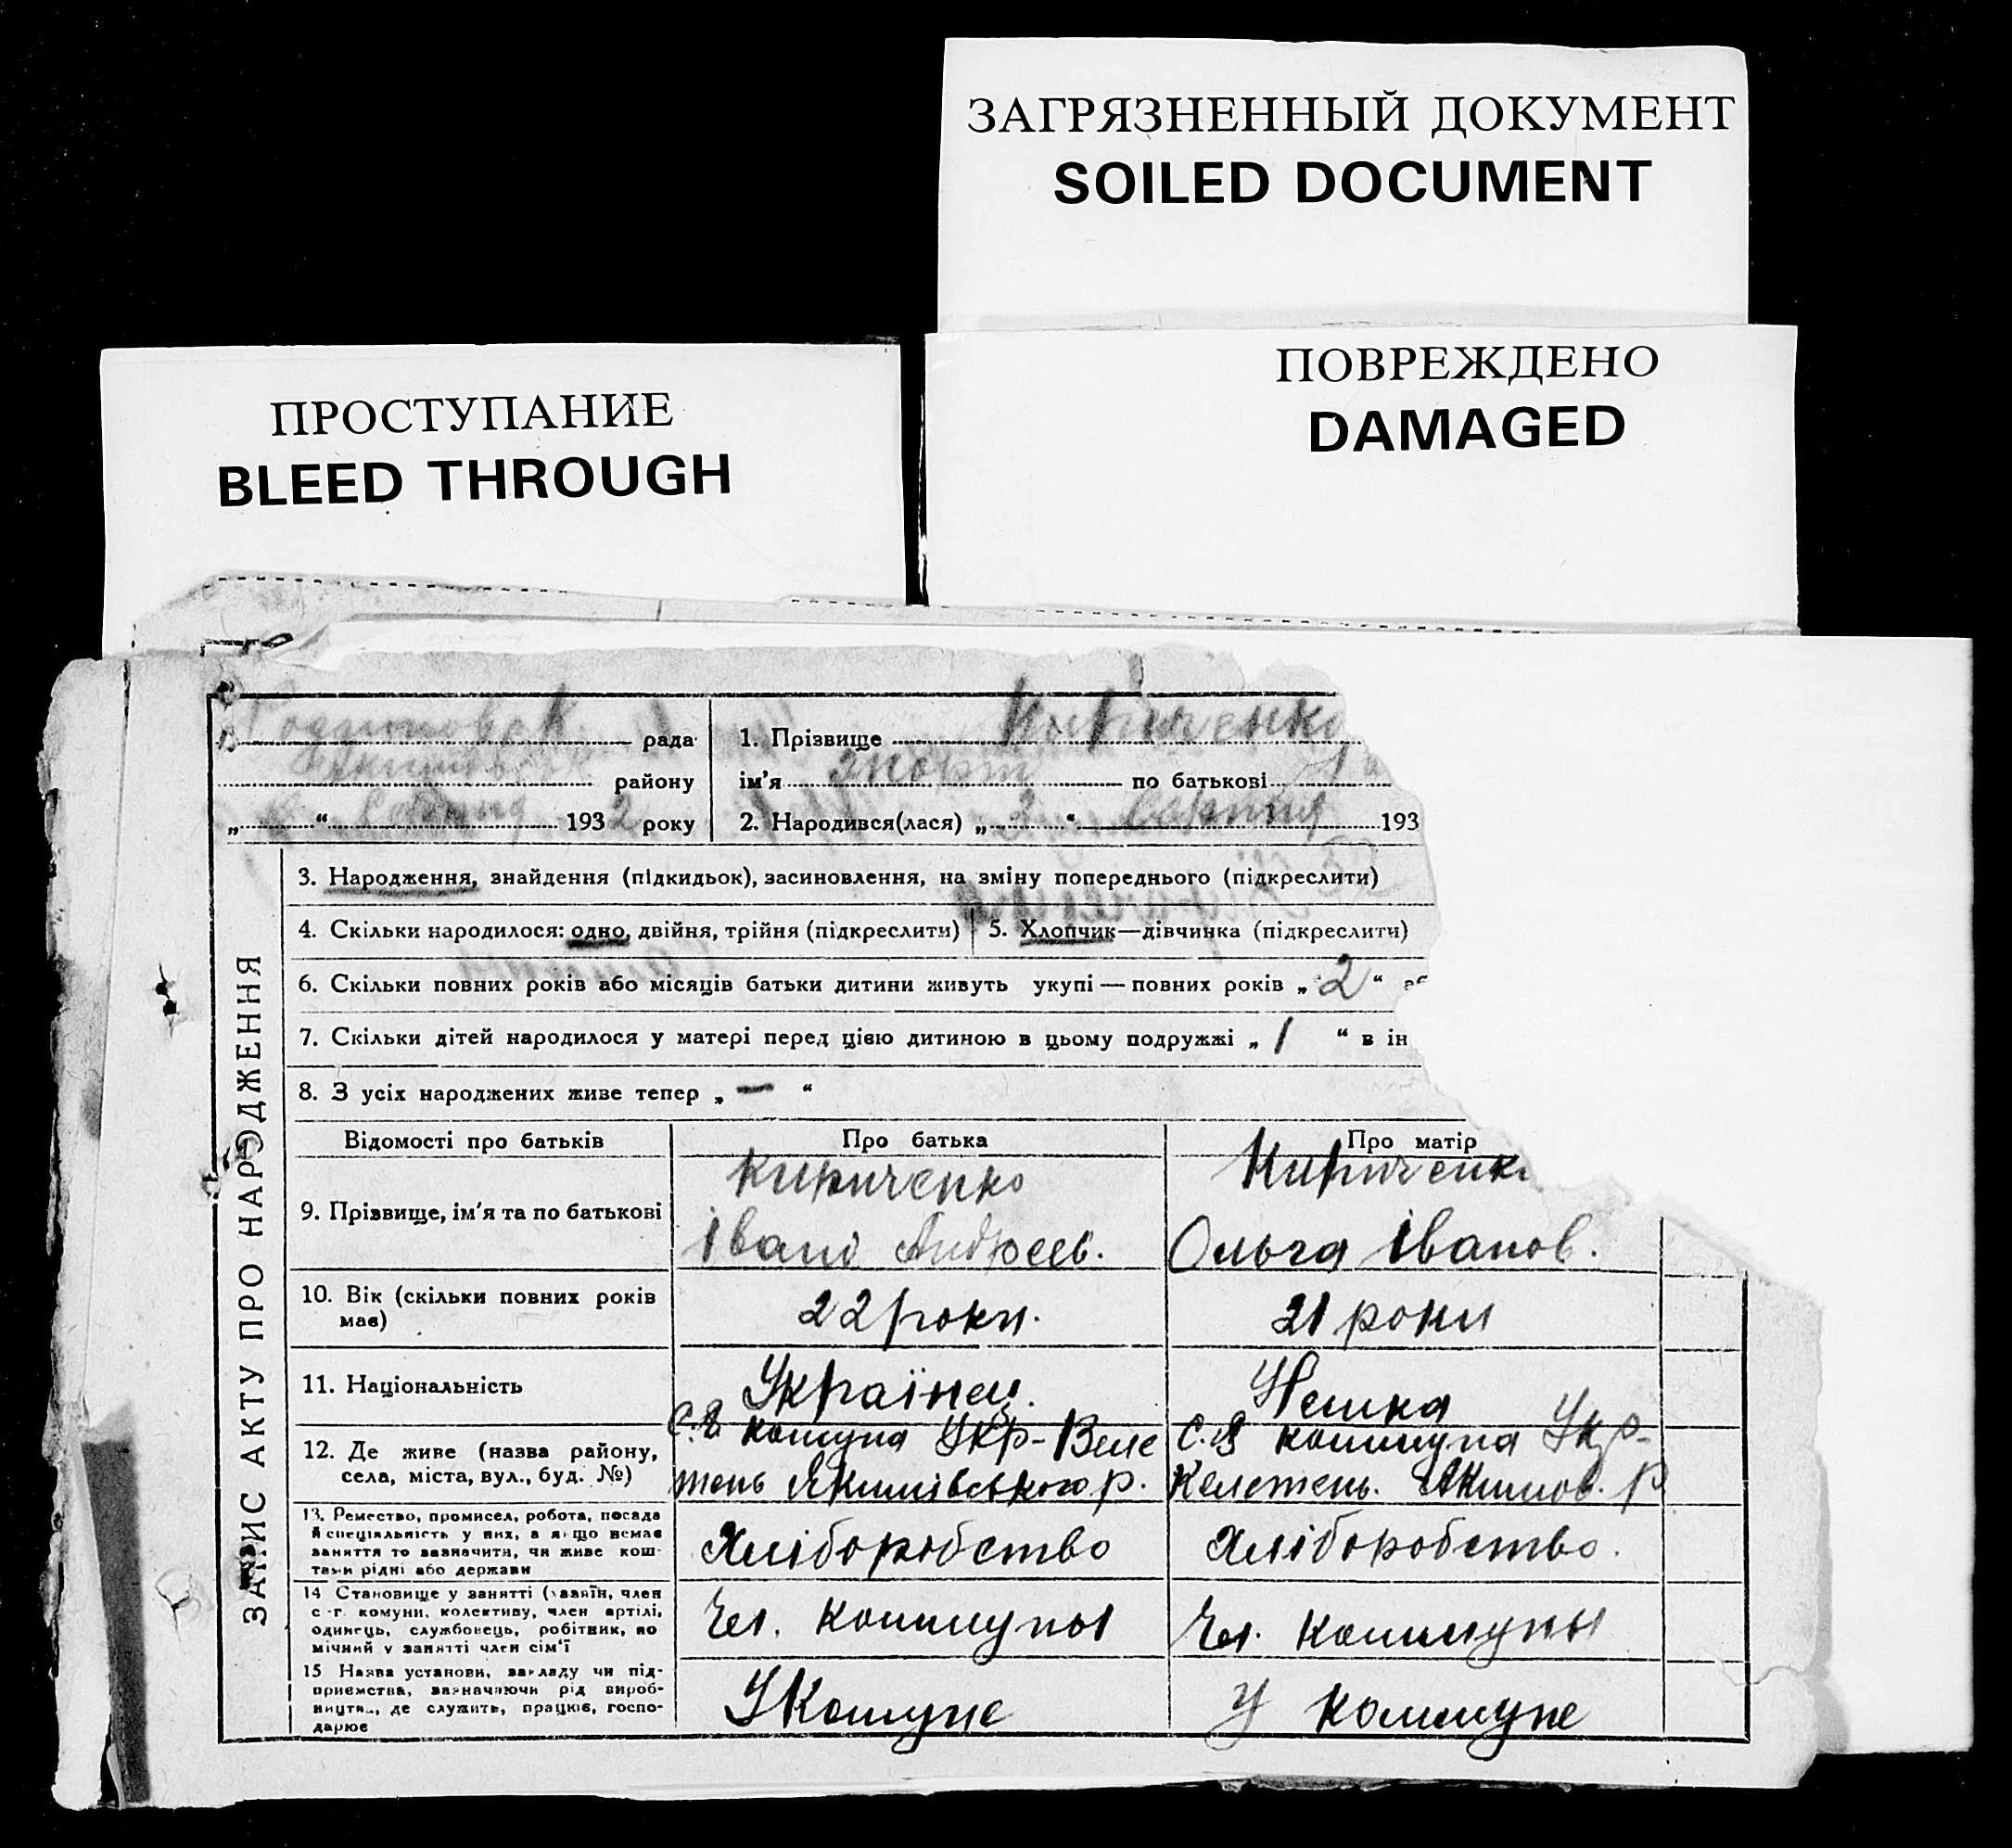 ЗАГРЯЗНЕННЫЙ ДОКУМЕНТ
SOILED DOCUMENT
ПОВРЕЖДЕНО
DAMAGED
ПРОСТУПАНИЕ
BLEED THROUGH
ЗАПИС АКТУ ПРО НАРОДЖЕННЯ
рада
району
„ “ 1932 року
1. Прізвище Кириченко
ім'я по батькові
2. Народився(лася) „ “ серпня 193
3. Народження, знайдення (підкидьок), засиновлення, на зміну попереднього (підкреслити)
4. Скільки народилося: одно, двійня, трійня (підкреслити)
5. Хлопчик—дівчинка (підкреслити)
6. Скільки повних років або місяців батьки дитини живуть укупі — повних років „2“
7. Скільки дітей народилося у матері перед цією дитиною в цьому подружжі „1“ в ін
8. З усіх народжених живе тепер „—“
Відомості про батьків
Про батька
Про матір
9. Прізвище, ім'я та по батькові
Кириченко
Іван Андреев.
Кириченк
Ольга Іванов.
10. Вік (скільки повних років
має)
22 роки.
21 роки
11. Національність
Українец.
Немка
12. Де живе (назва району,
села, міста, вул., буд. №)
комуна Укр-Веле
тень Якимівського р.
коммуна Укр-
Велетень. Якимов. р
13. Ремество, промисел, робота, посада
й спеціяльність у них, а якщо немає
заняття то зазначити, чи живе кош-
тами рідні або держави
Хліборобство
Хліборобство.
14 Становище у занятті (хазяїн, член
с-г. комуни, колективу, член артілі,
одинець, службовець, робітник, по
мічний у занятті член сім'ї
Чл. коммуны
Чл. коммуны
15 Назва установи, закладу чи під-
приємства, зазначаючи рід вироб-
ництва, де служить, працює, госпо-
дарює
У Комуне
У коммуне